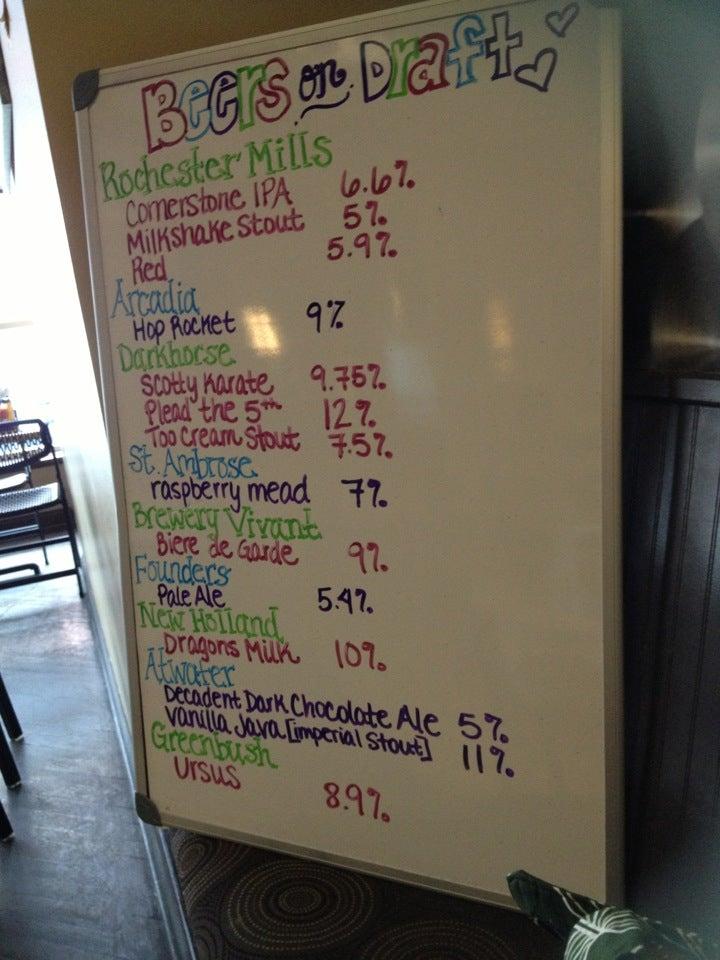 Beers on Draft
Rochester Mills
Cornerstone IPA 6.6%
Milkshake Stout 5%
Red 5.9%
Arcadia
Hop Rocket 9%
Darkhorse
Scotty Karate 9.75%
Plead the 5th 12%
Too Cream Stout 7.5%
St. Ambrose
raspberry mead 7%
Brewery Vivant
Biere de Garde 9%
Founders
Pale Ale 5.4%
New Holland
Dragons Milk 10%
Atwater
Decadent Dark Chocolate Ale 5%
Vanilla Java [imperial Stout] 11%
Greenbush
Ursus 8.9%